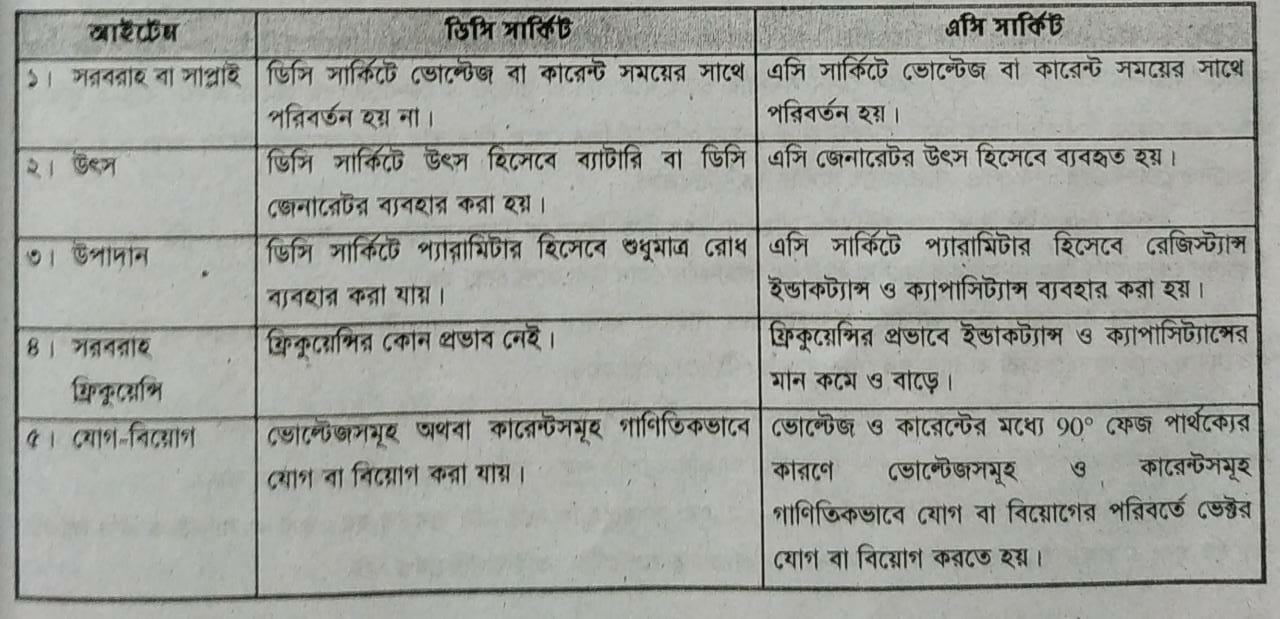 আইটেম
ডিসি সার্কিট
এসি সার্কিট
১। সরবরাহ বা সাপ্লাই
ডিসি সার্কিটে ভোল্টেজ বা কারেন্ট সময়ের সাথে
পরিবর্তন হয় না।
এসি সার্কিটে ভোল্টেজ বা কারেন্ট সময়ের সাথে
পরিবর্তন হয়।
২। উৎস
ডিসি সার্কিটে উৎস হিসেবে ব্যাটারি বা ডিসি
জেনারেটর ব্যবহার করা হয়।
এসি জেনারেটর উৎস হিসেবে ব্যবহৃত হয়।
৩। উপাদান
ডিসি সার্কিটে প্যারামিটার হিসেবে শুধুমাত্র রোধ
ব্যবহার করা যায়।
এসি সার্কিটে প্যারামিটার হিসেবে রেজিস্ট্যান্স
ইন্ডাকট্যান্স ও ক্যাপাসিট্যান্স ব্যবহার করা হয়।
৪। সরবরাহ
ফ্রিকুয়েন্সি
ফ্রিকুয়েন্সির কোন প্রভাব নেই।
ফ্রিকুয়েন্সির প্রভাবে ইন্ডাকট্যান্স ও ক্যাপাসিট্যান্সের
মান কমে ও বাড়ে।
৫। যোগ-বিয়োগ
ভোল্টেজসমূহ অথবা কারেন্টসমূহ গাণিতিকভাবে
যোগ বা বিয়োগ করা যায়।
ভোল্টেজ ও কারেন্টের মধ্যে 90° ফেজ পার্থক্যের
কারণে ভোল্টেজসমূহ ও কারেন্টসমূহ
গাণিতিকভাবে যোগ বা বিয়োগের পরিবর্তে ভেক্টর
যোগ বা বিয়োগ করতে হয়।